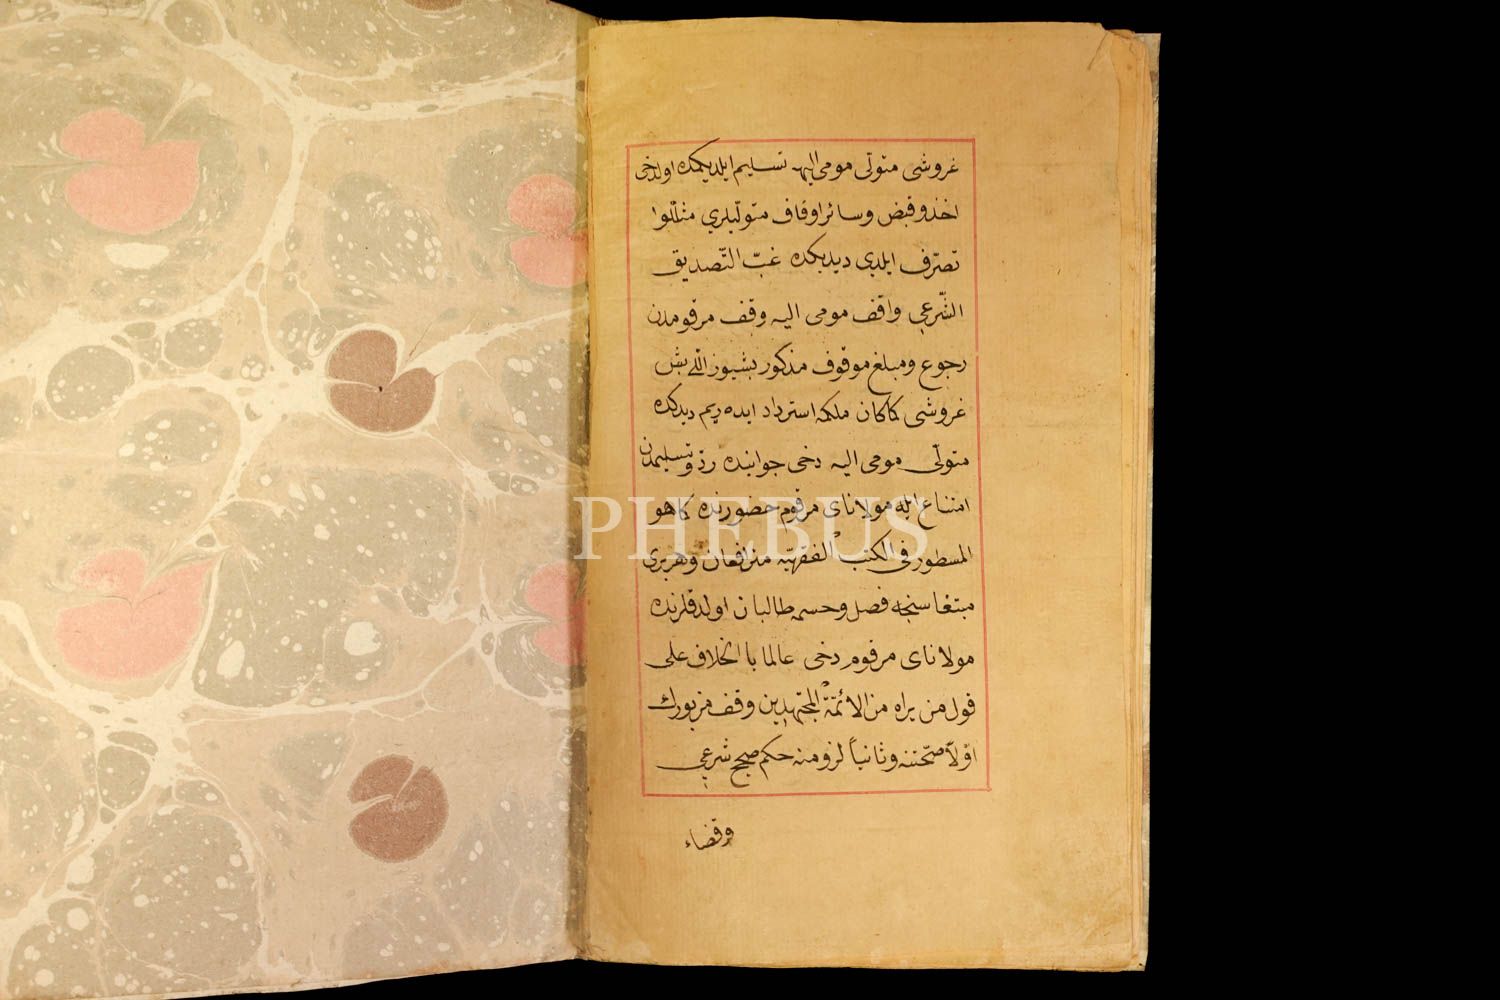 غروشی متولّی مومی الیهه تسلیم ایلدیکمده اولدخی
اخذ و قبض و سائر اوقاف متولّیلری مثللّوا
تصرّف ایلدی دیدیکده غبّ التّصدیق
الشّرعی واقف مومی الیه وقف مرقومدن
رجوع و مبلغ موقوف مذکور بشیوز اللی بش
غروشی کاکان ملکمه استرداد ایده ریم دیدکده
متولّی مومی الیه دخی جوابنده ردّ و تسلیمدن
امتناع ایله مولانای مرقوم حضورنده کاهو
المسطور فی الکتب الفقهیّه مترافعان و هربری
مبتغاسنجه فصل و حسمه طالبان اولدقلرنده
مولانای مرقوم دخی عالما بالخلاف علی
قول من یراه من الائمّة المجتهدین وقف مزبورك
اوّلاً صحّتنه و ثانیاً لزومنه حکم صحیح شرعی
و قضاء
PHEBUS